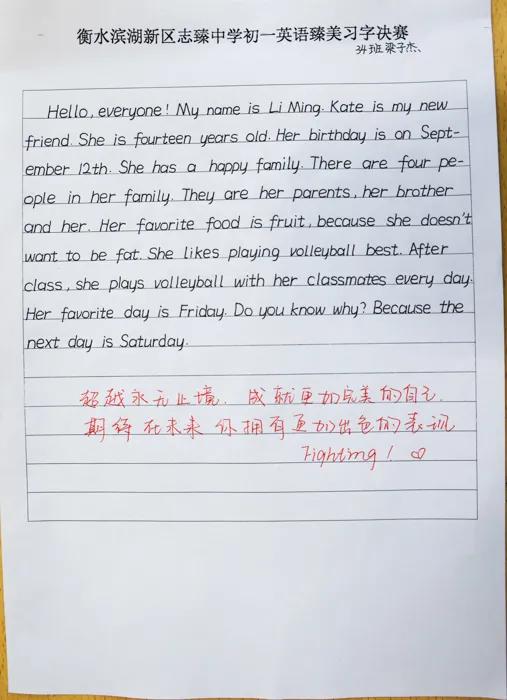 衡水滨湖新区志臻中学初一英语臻美习字决赛
34班 梁子杰、
Hello, everyone! My name is Li Ming. Kate is my new
friend. She is fourteen years old. Her birthday is on Sept-
ember 12th. She has a happy family. There are four pe-
ople in her family. They are her parents, her brother
and her. Her favorite food is fruit, because she doesn't
want to be fat. She likes playing volleyball best. After
class, she plays volleyball with her classmates every day.
Her favorite day is Friday. Do you know why? Because the
next day is Saturday.
超越永无止境, 成就更加完美的自己.
期待在未来 你拥有更加出色的表现
Fighting! ♡